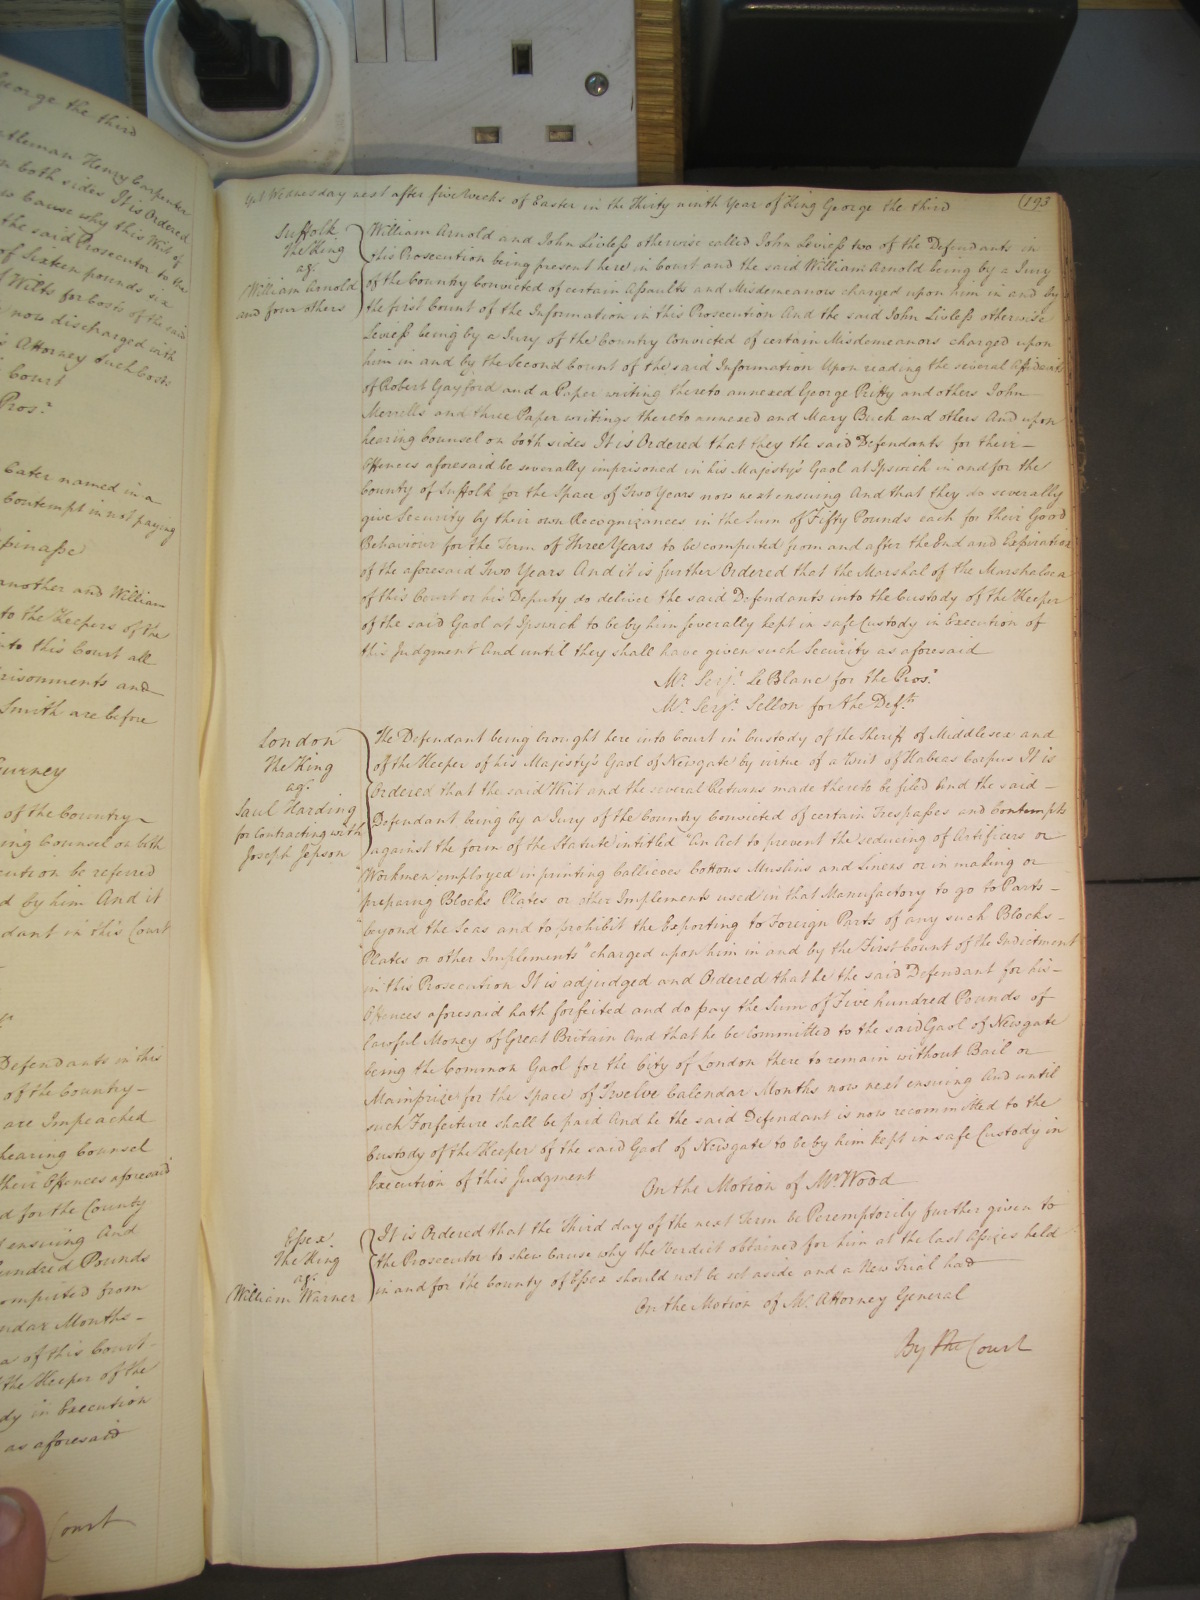 George the third
Gentleman Henry Carpenter
on both sides It is Ordered
Cause why this Writ of
the said Prosecutor to the
of Sixteen pounds six
Wilts for Costs of the said
now discharged with
Attorney such Costs
Court
Pros.r
Cater named in a
Contempt in not paying
another and William
to the Keepers of the
into this Court all
Imprisonments and
Smith are before
Gurney
of the Country
ing Counsel on both
cution be referred
d by him And it
dant in this Court
Defendants in this
of the Country
are Impeached
hearing Counsel
their Offences aforesaid
d for the County
ensuing And
hundred Pounds
computed from
ndar Months
of this Court
the Keeper of the
dy in Execution
as aforesaid
Court
Yet Wednesday next after five Weeks of Easter in the Thirty ninth Year of King George the third
193
Suffolk
The King
ag.t
William Arnold
and four others
William Arnold and John Livless otherwise called John Leviess two of the Defendants in
this Prosecution being present here in Court and the said William Arnold being by a Jury
of the Country Convicted of certain Assaults and Misdemeanors charged upon him in and by
the first Count of the Information in this Prosecution And the said John Livless otherwise
Leviess being by a Jury of the Country Convicted of certain Misdemeanors charged upon
him in and by the Second Count of the said Information Upon reading the several Affidavits
of Robert Gayford and a Paper writing thereto annexed George Pitty and others John
Merrills and three Paper writings thereto annexed and Mary Buch and others And upon
hearing Counsel on both sides It is Ordered that they the said Defendants for their
Offences aforesaid be severally imprisoned in his Majesty's Gaol at Ipswich in and for the
County of Suffolk for the Space of Two Years now next ensuing And that they do severally
give Security by their own Recognizances in the Sum of Fifty Pounds each for their Good
Behaviour for the Term of Three Years to be computed from and after the End and Expiration
of the aforesaid Two Years And it is further Ordered that the Marshal of the Marshalsea
of this Court or his Deputy do deliver the said Defendants into the Custody of the Keeper
of the said Gaol at Ipswich to be by him severally kept in safe Custody in Execution of
this Judgment And until they shall have given such Security as aforesaid
Mr. Serj.t Le Blanc for the Pros.r
Mr. Serj.t Sellon for the Def.ts
London
The King
ag.t
Saul Harding
for Contracting with
Joseph Jepson
The Defendant being brought here into Court in Custody of the Sheriff of Middlesex and
of the Keeper of his Majesty's Gaol of Newgate by virtue of a Writ of Habeas Corpus It is
Ordered that the said Writ and the several Returns made thereto be filed And the said
Defendant being by a Jury of the Country Convicted of certain Trespasses and Contempts
against the form of the Statute intitled "An Act to prevent the seducing of Artificers or
"Workmen employed in printing Callicoes Cottons Muslins and Linens or in making or
"preparing Blocks Plates or other Implements used in that Manufactory to go to Parts
"beyond the Seas and to prohibit the Exporting to Foreign Parts of any such Blocks
Plates or other Implements" charged upon him in and by the First Count of the Indictment
in this Prosecution It is adjudged and Ordered that he the said Defendant for his
Offences aforesaid hath forfeited and do pay the Sum of Five hundred Pounds of
lawful Money of Great Britain And that he be Committed to the said Gaol of Newgate
being the Common Gaol for the City of London there to remain without Bail or
Mainprize for the Space of Twelve Calendar Months now next ensuing And until
such Forfeiture shall be paid And he the said Defendant is now recommitted to the
Custody of the Keeper of the said Gaol of Newgate to be by him kept in safe Custody in
Execution of this Judgment
On the Motion of Mr. Wood
Essex
The King
ag.t
William Warner
It is Ordered that the Third day of the next Term be Peremptorily further given to
the Prosecutor to shew Cause why the Verdict obtained for him at the last Assizes held
in and for the County of Essex should not be set aside and a New Trial had
On the Motion of Mr. Attorney General
By the Court